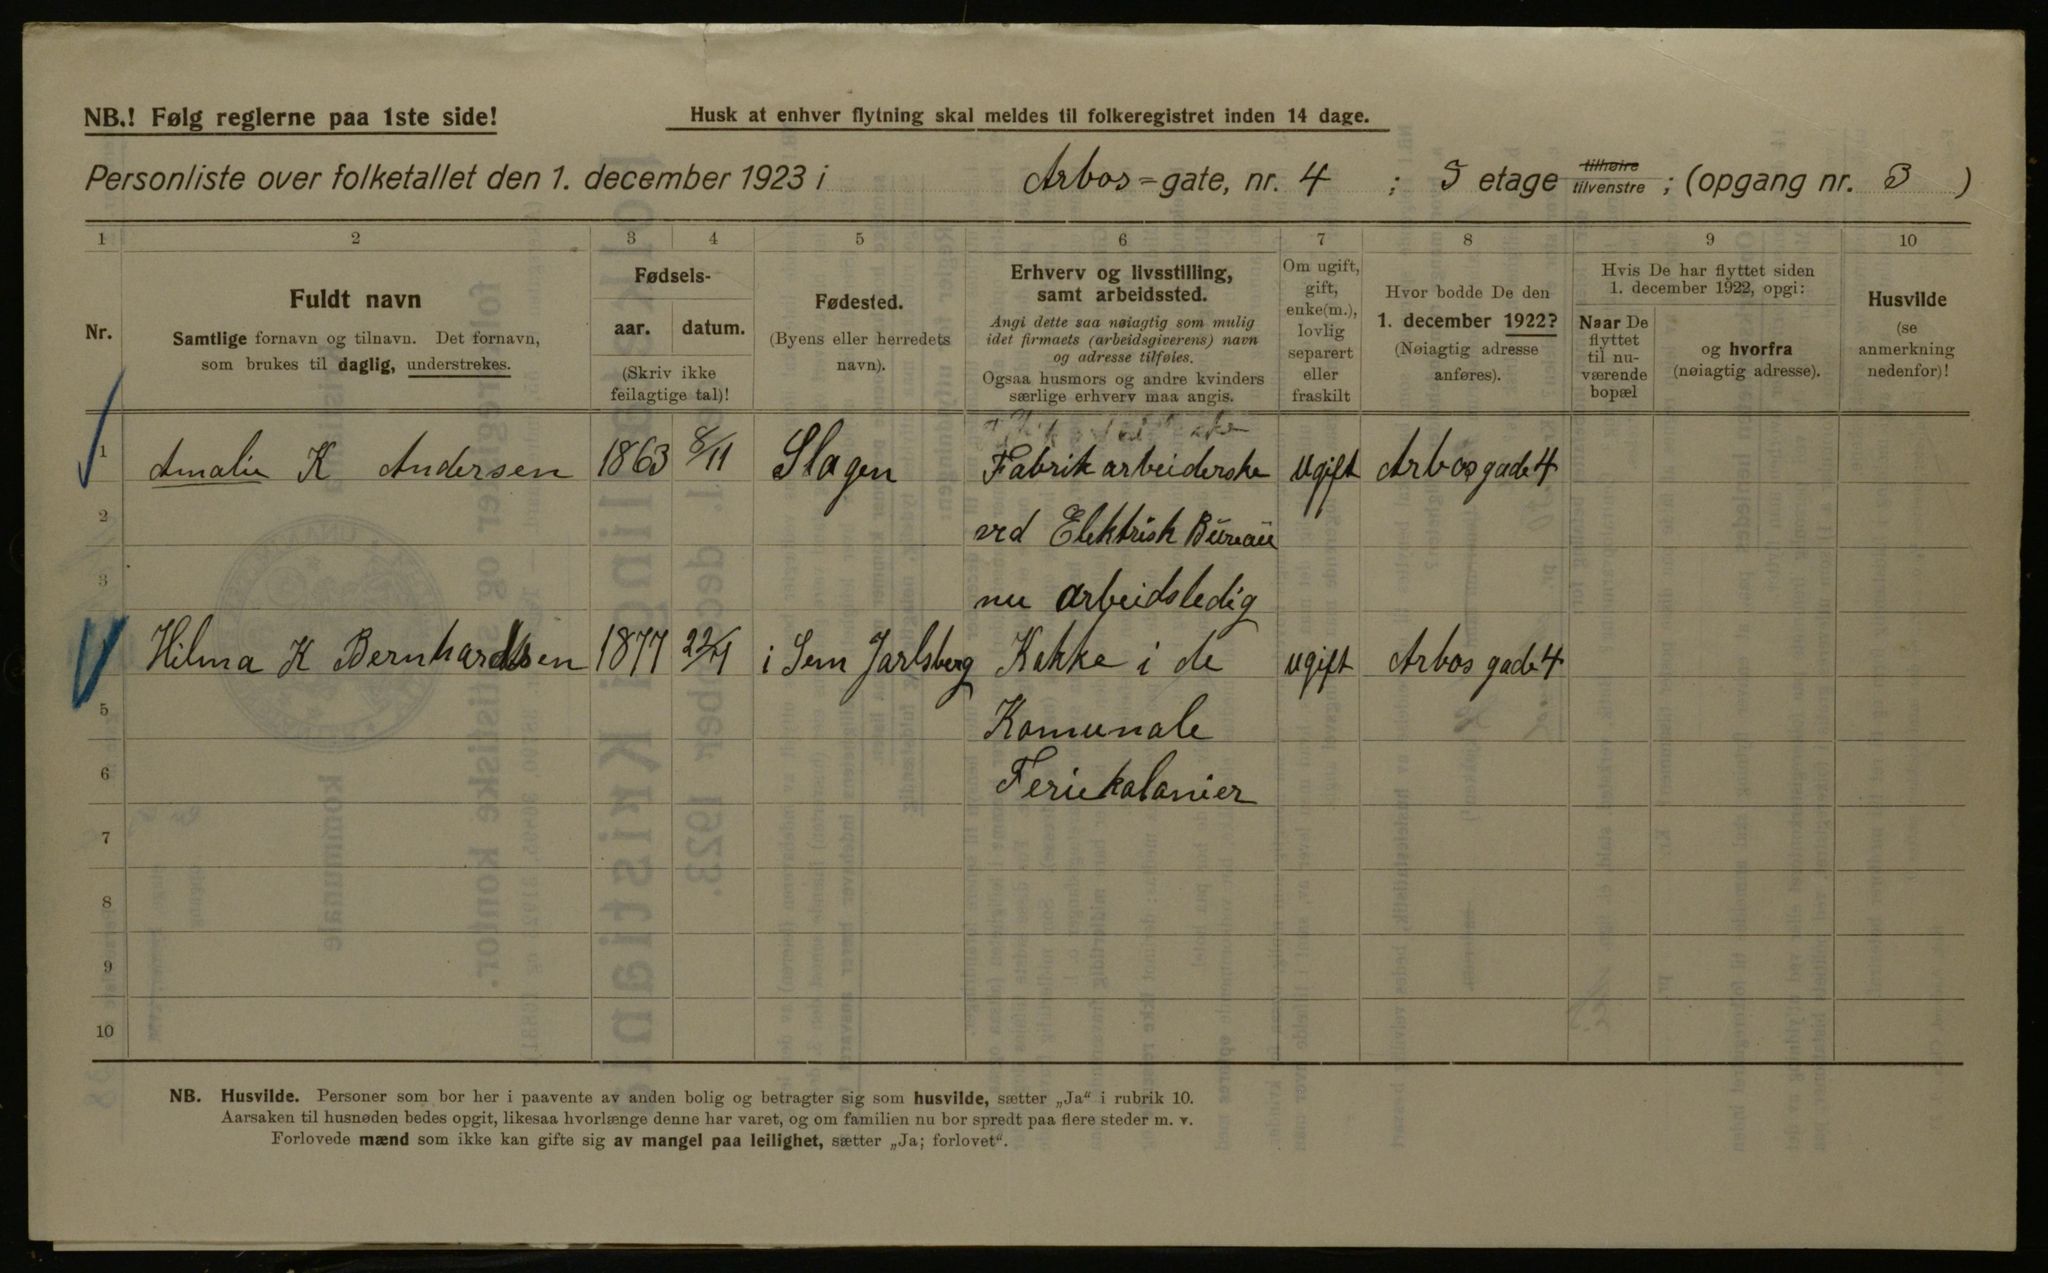 NB.! Følg reglerne paa 1ste side!
Husk at enhver flytning skal meldes til folkeregistret inden 14 dage.
Personliste over folketallet den 1. december 1923 i Arbos=gate, nr. 4 ; 5 etage tilhøire tilvenstre ; (opgang nr. 3 )
1 2 3 4 5 6 7 8 9 10
Nr.
Fuldt navn
Samtlige fornavn og tilnavn. Det fornavn,
som brukes til daglig, understrekes.
Fødsels-
aar. datum.
(Skriv ikke
feilagtige tal)!
Fødested.
(Byens eller herredets
navn).
Erhverv og livsstilling,
samt arbeidssted.
Angi dette saa nøiagtig som mulig
idet firmaets (arbeidsgiverens) navn
og adresse tilføies.
Ogsaa husmors og andre kvinders
særlige erhverv maa angis.
Om ugift,
gift,
enke(m.),
lovlig
separert
eller
fraskilt
Hvor bodde De den
1. december 1922?
(Nøiagtig adresse
anføres).
Hvis De har flyttet siden
1. december 1922, opgi:
Naar De
flyttet
til nu-
værende
bopæl
og hvorfra
(nøiagtig adresse).
Husvilde
(se
anmerkning
nedenfor)!
1 Amalie K Andersen 1863 8/11 Slagen Fabrikarbeiderske ugift Arbosgade 4
2 ved Elektrisk Bureau
3 nu arbeidsledig
Hilma K Bernhardsen 1877 i Sem Jarlsberg Kokke i de ugift Arbos gade 4
5 Komunale
6 Feriekolonier
7
8
9
10
NB. Husvilde. Personer som bor her i paavente av anden bolig og betragter sig som husvilde, sætter „Ja" i rubrik 10.
Aarsaken til husnøden bedes opgit, likesaa hvorlænge denne har varet, og om familien nu bor spredt paa flere steder m. v.
Forlovede mænd som ikke kan gifte sig av mangel paa leilighet, sætter „Ja; forlovet".